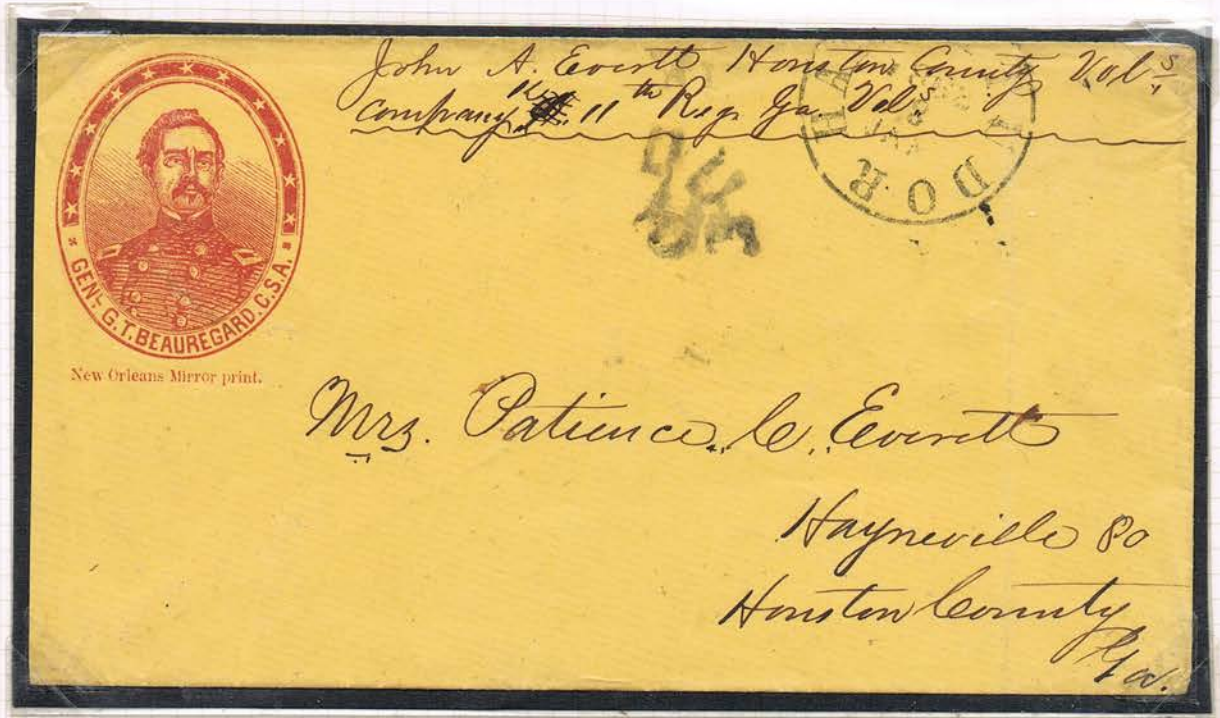 John A. Everett Houston County Vols,
company 11th Reg. Ga. Vols
GENL. G.T. BEAUREGARD. C.S.A.
New Orleans Mirror print.
Mrs. Patience C. Everett
Hayneville Po
Houston County
Ga.